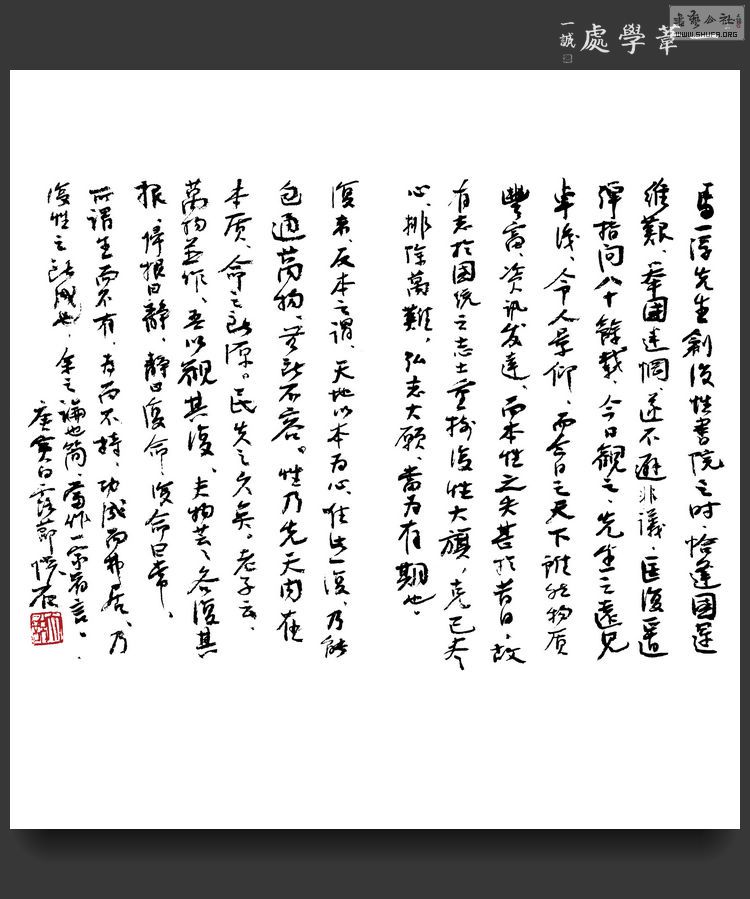 書法公社
WWW.SHUFA.ORG
一葦學處
一誠
馬一浮先生創復性書院之时、恰逢國運
維艱、舉國迷惘、遂不避非議、匡復墨道
彈指间八十餘載、今日觀之、先生之遠见
卓识、令人景仰、而今日之天下雖然物质
豐富、资讯发達、而本性之失甚於昔日、故
有志於國统之志士重树復性大旗、竟已尽
心、排除萬難、弘志大願、當为有期也。
復者、反本之谓、天地以本为心、唯此一復、乃能
包通萬物、無所不容。性乃先天内在
本质、命之所源。民失之久矣。老子云、
萬物並作、吾以觀其復、夫物芸芸、各復其
根、歸根曰靜、靜曰復命、復命曰常、
所谓生而不有、为而不持、功成而弗居、乃
復性之所成也、余之論也简、當作一家前言。
庚寅白露節